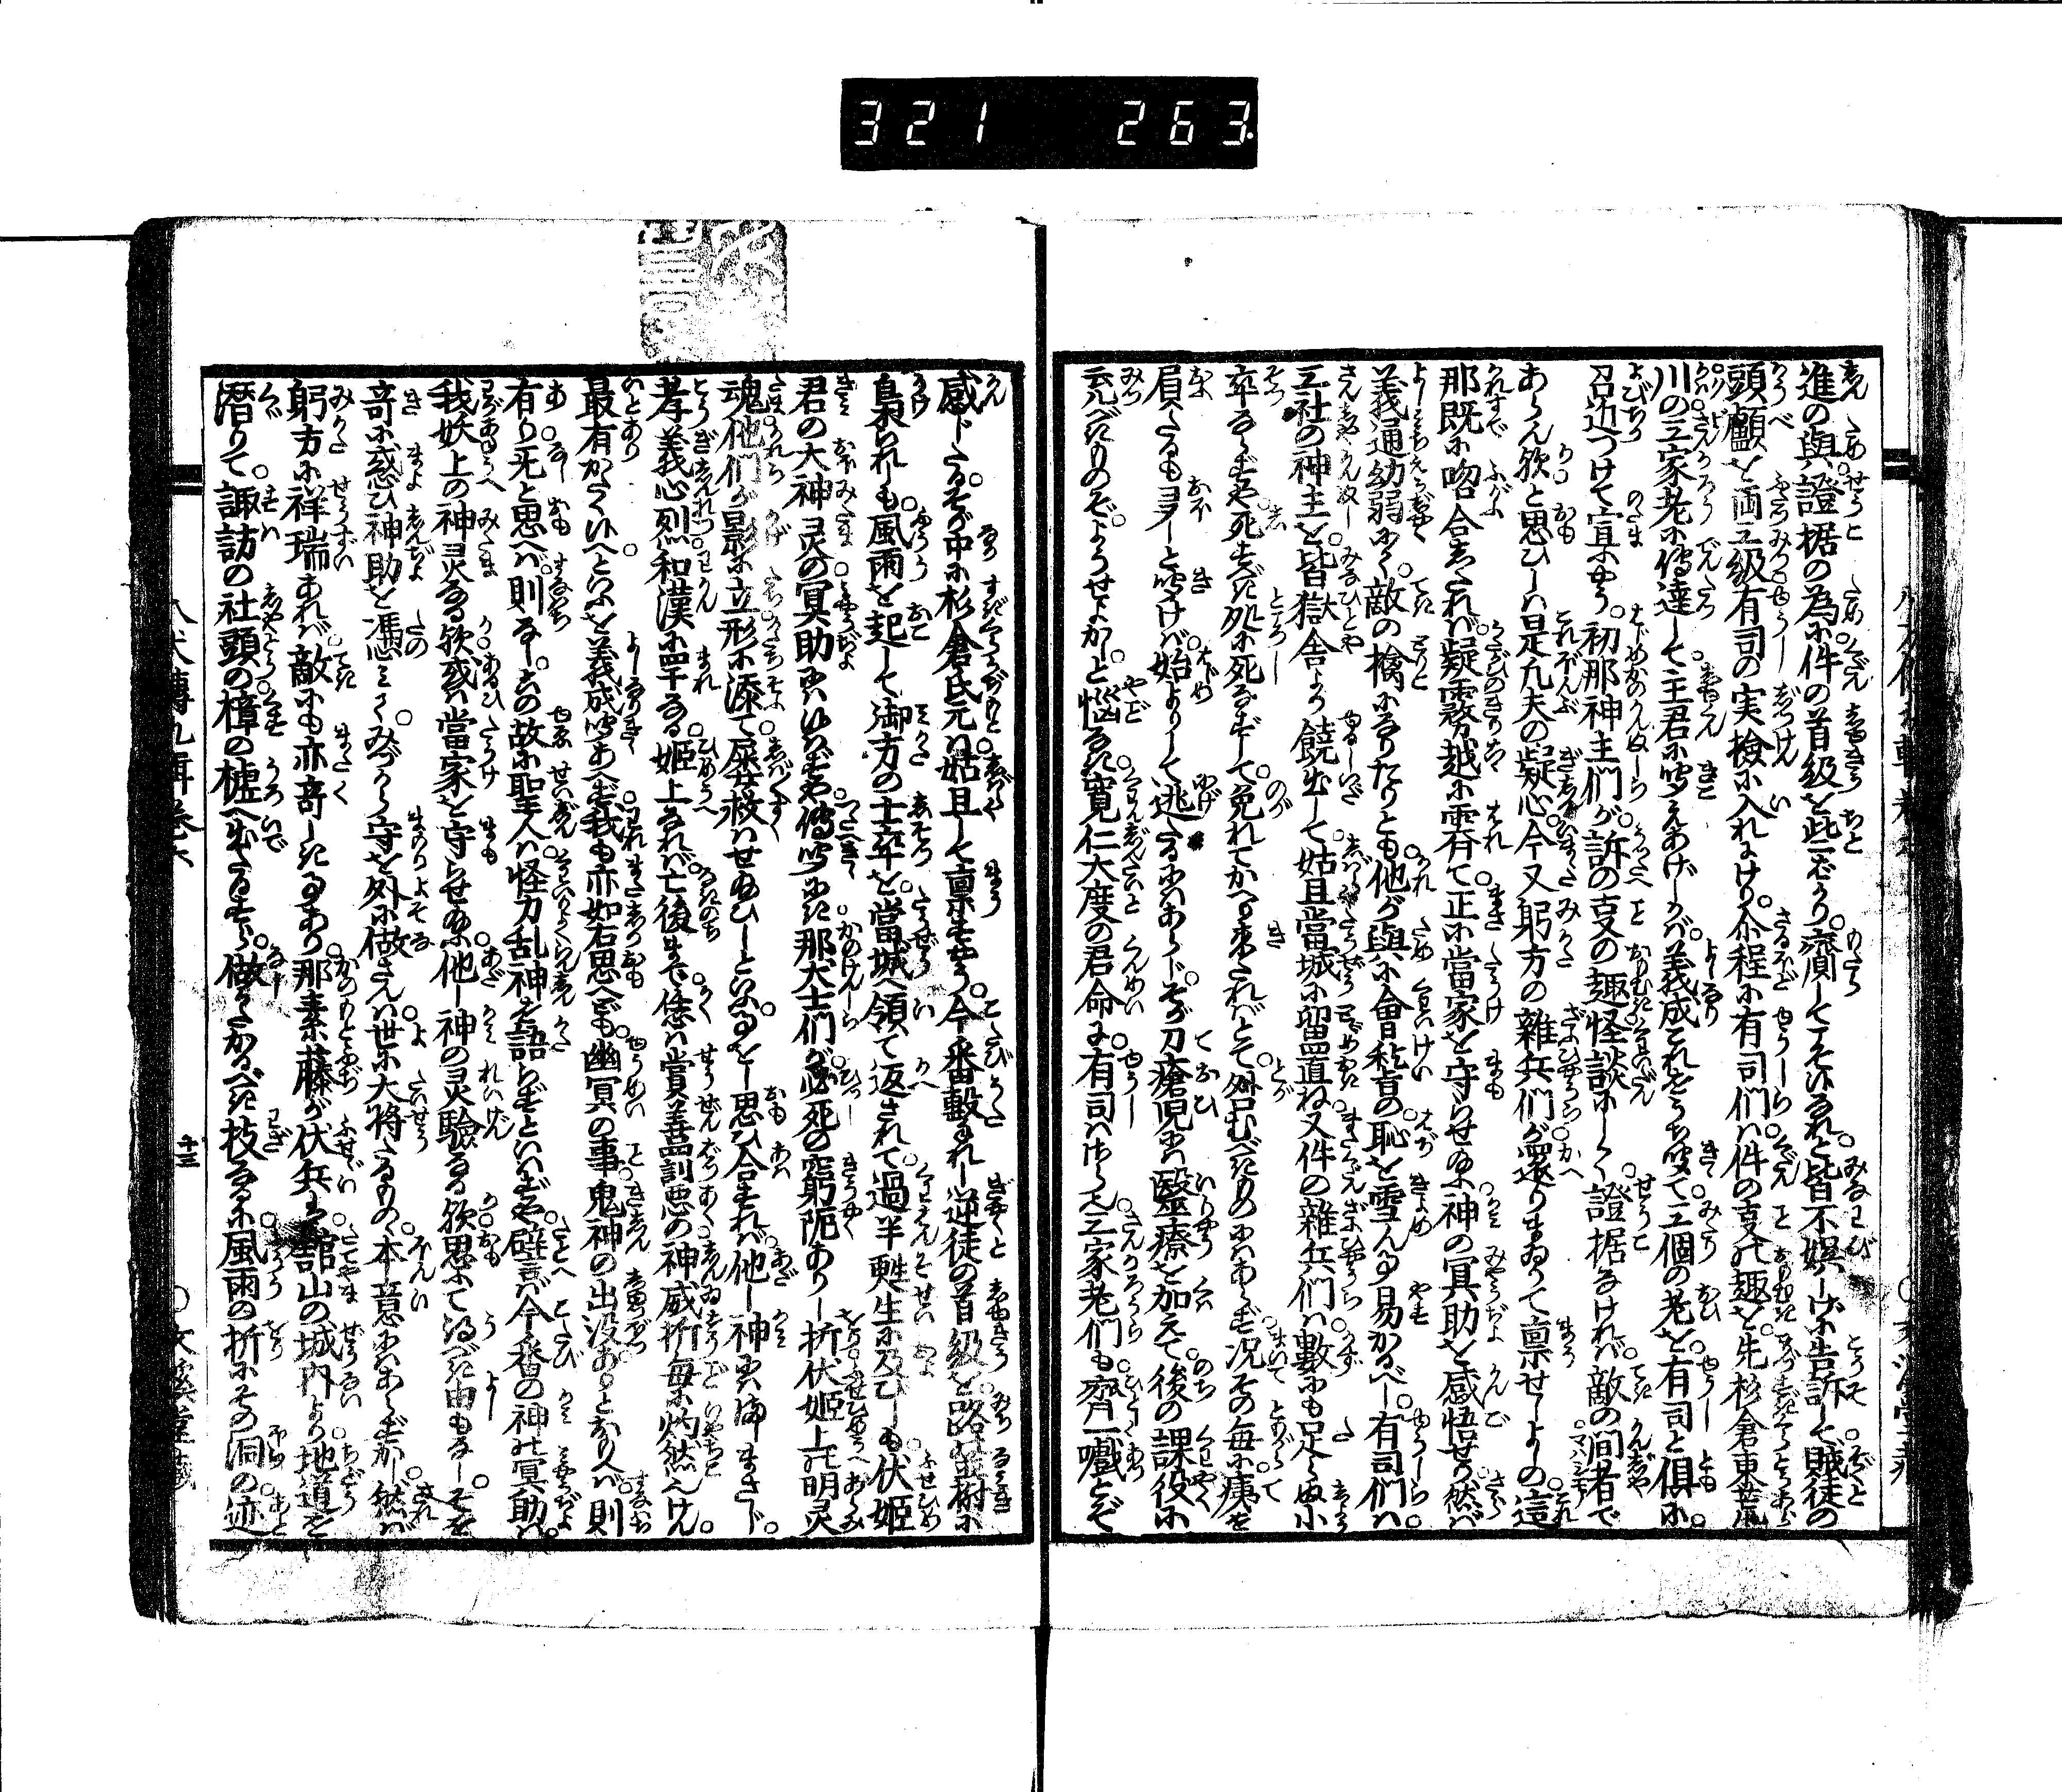 321 263
進の與證据の為に件の首級を些ばかり齎してまゐれと皆不娯しげに告訴して賊徒の
頭顱を両三級有司の実檢に入れにけり尒程に有司們は件の叓の趣を先杉倉東荒
川の三家老に傳達して主君に聞えあげしかば義成これをうち聞て三個の老を有司と倶に
召近つけて宣ふやう初那神主們が訴の叓の趣怪談にして證据なければ敵の間者で
あらん欤と思ひしは是凡夫の疑心今又躬方の雜兵們が還りまゐりて禀せしよしの這
那既に吻合したれば疑霧越に霽て正に當家を守らせ給ふ神の冥助を感悟せり然ば
義通幼弱にして敵の擒になりたりとも他が與に會稽の恥を雪ん事易かるべし有司們は
三社の神主を皆獄舎より饒出して姑且當城に留置ね又件の雜兵們は數にも足らぬ小
卒ならずや死すべき処に死なずして免れてかへり来たればとて咎むべきものにはあらず況その毎に痍を
負たるもヲヲしと聞けば始よりして逃たるにはあらじそが刀瘡児には醫療を加えて後の課役に
充べきものぞようせよかしと惱なき寛仁大度の君命に有司はさら也三家老們も齊一嘆とぞ
感じたるそが中に杉倉氏元は姑且して禀すやう今番轂れし逆徒の首級を路の樹に
梟られしも風雨を起して御方の士卒を當城へ領て返されて過半甦生に及びしも伏姫
君の大神灵の冥助にはゆはずや傳聞にき那犬士們が必死の窮阨ありし折伏姫上の明灵
魂他們が影に立形に添て屡其救はせ給ひしといふ事を思ひ合すれば他し神には侍まさじ
孝義心烈和漢に罕なる姫上なれば亡後まで恁は賞善罰悪の神威折毎に灼然けん
最有がたく侍へといふを義成聞あへず我も亦如右思へども幽冥の事鬼神の出没ありとおもへば則
有り旡と思へば則なしこの故に聖人は怪力乱神を語らずといはずや譬ば今番の神の冥助は
我妖上の神灵なる欤或は當家を守らせ給ふ他し神の灵驗なる欤思ふて得べき由もなしそを
奇に惑ひ神助を憑みてみづから守を外に做さんは世に大将たるものゝ本意にはあらずかし然ば
躬方に祥瑞あれば敵にも亦奇しき事あり那素藤が伏兵は舘山の城内より地道を
潜りて諏訪の社頭の樟の樝へ出たるすら做しがたかるべき技なるに風雨の折にその洞の迹
八犬傳九輯卷六
十三
文溪堂藏